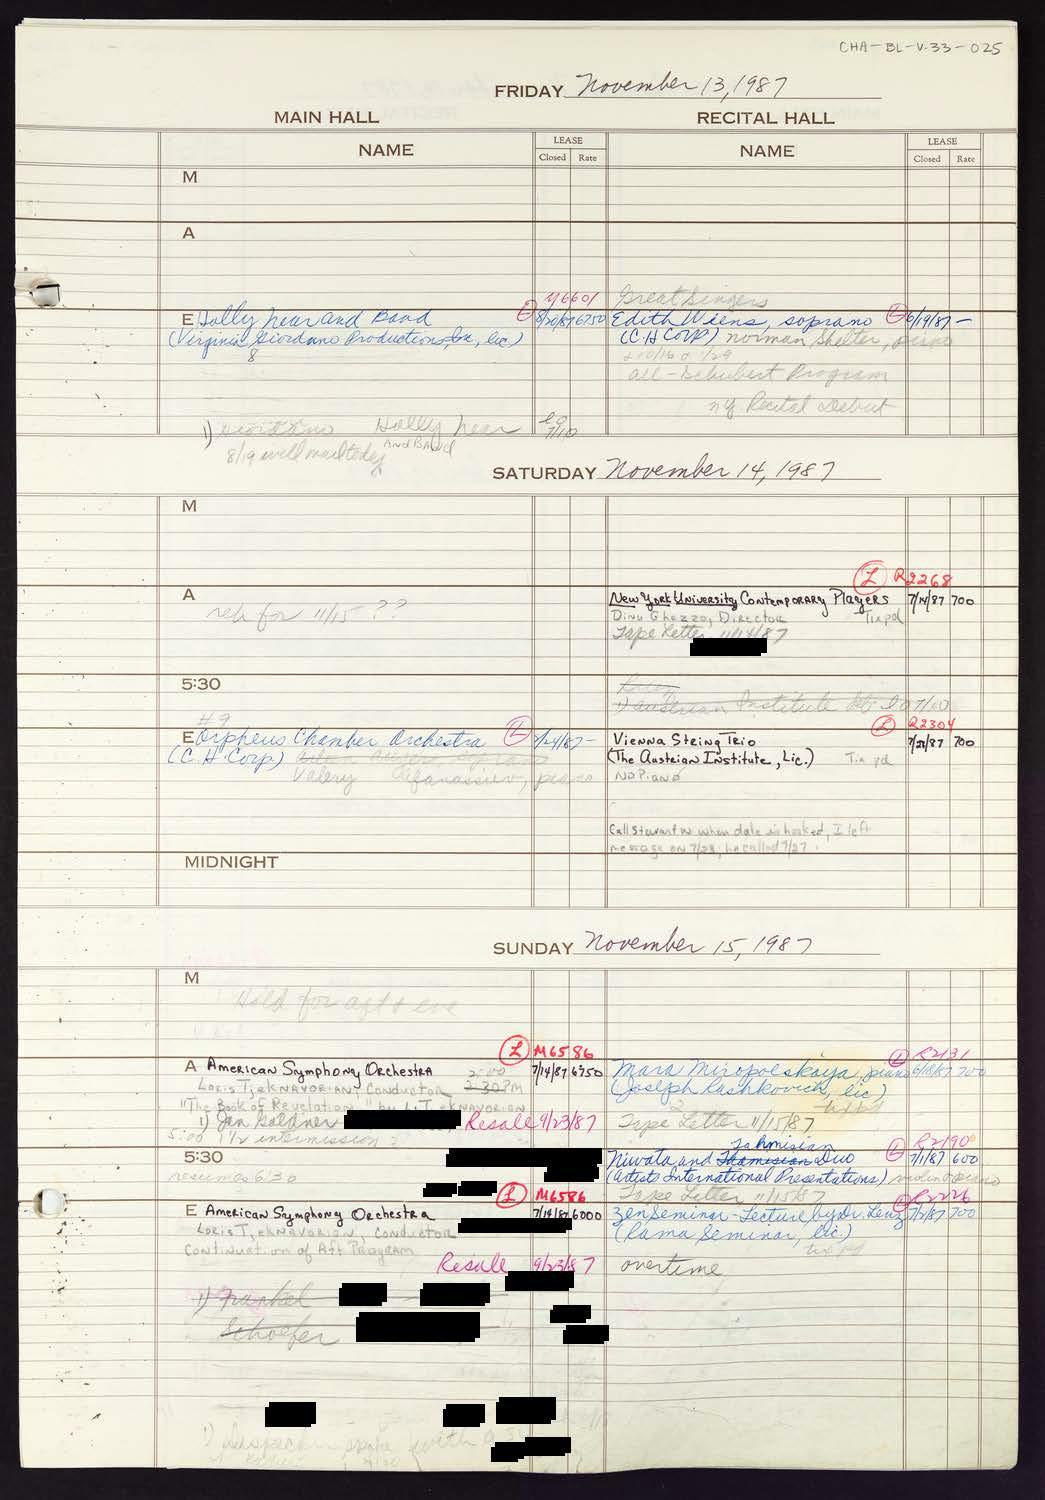 CHA-BL-V-33-025
FRIDAY November 13, 1987
MAIN HALL RECITAL HALL
NAME LEASE NAME LEASE
Closed Rate Closed Rate
M
A
M6601 Great Singers
E Holly Near and Band L 8/20/87 6750 Edith Wiens, soprano L 6/19/87 -
(Virginia Giordano Productions, Inc, lic) (C H Corp) Norman Shelter, piano
8
all-Schubert Program
NY Recital Debut
1) Giordano Holly Near 7/10
8/19 will mail today And Band
SATURDAY November 14, 1987
M
L R2268
A reh for 11/15 ?? New York University Contemporary Players 7/14/87 700
Dinu Ghezzo, Director Tix pd
Tape Letter 11/14/87
5:30
1) Austrian Institute 7/10
#9 L R2304
E Orpheus Chamber Orchestra L 7/24/87 - Vienna String Trio 7/31/87 700
(C. H. Corp) (The Austrian Institute, Lic.) Tix pd
Valery Afanassiev, piano No Piano
Call Stewart W when date is booked, I left
message on 7/23, he called 7/27.
MIDNIGHT
SUNDAY November 15, 1987
M
Hold for aft + eve
L M6586 L R2131
A American Symphony Orchestra 2:00 7/14/87 6750 Mara Miropolskaya, piano 6/18/87 700
Loris Tjeknavorian, Conductor 2:30PM (Joseph Rashkovich, lic)
"The Book of Revelation" by L. Tjeknavorian
1) Jan Goldner Resale 9/23/87 Tape Letter 11/15/87
5:00 1 1/2 intermission
Tahmisian L R2190
5:30 Niwata and Thamisian Duo 7/1/87 600
resumes 6:30 (Artists International Presentations) violin & piano
L M6586 Tape Letter 11/15/87 L R2226
E American Symphony Orchestra 7/14/87 6000 Zen Seminar - Lecture by Dr. Lenz 7/2/87 700
Loris Tjeknavorian, Conductor (Rama Seminar, lic.)
Continuation of Aft Program
Resale 9/23/87 overtime
1) Frankel
Schoefer